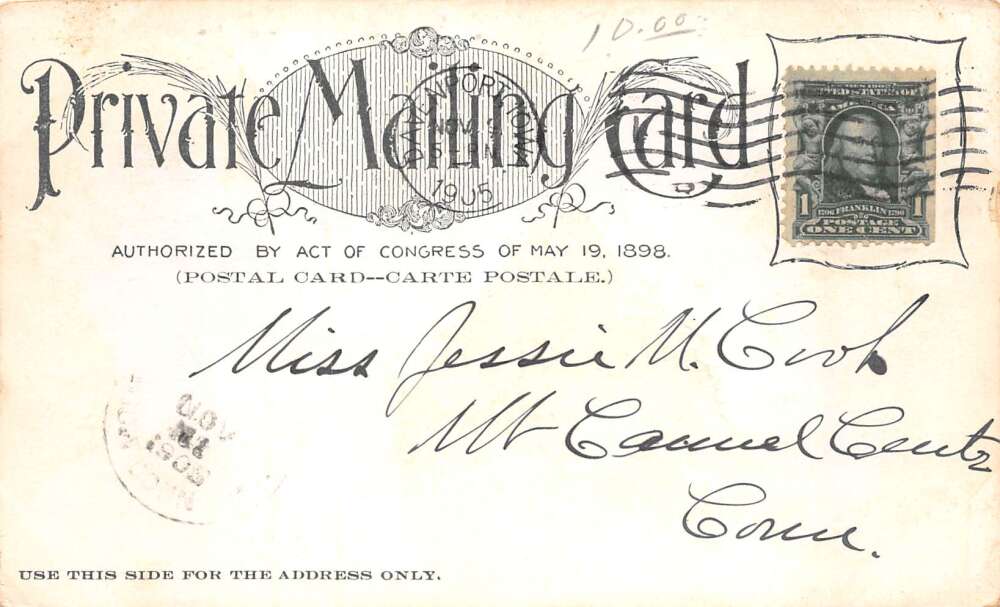 10.00
Private Mailing Card
DAVENPORT, IOWA
NOV
1905
SERIES 1902
UNITED STATES OF
AMERICA
1 1706 FRANKLIN 1790 1
POSTAGE
ONE CENT
AUTHORIZED BY ACT OF CONGRESS OF MAY 19, 1898.
(POSTAL CARD--CARTE POSTALE.)
Miss Jessie M. Cook
Mt Carmel Center
Conn.
NOV
USE THIS SIDE FOR THE ADDRESS ONLY.